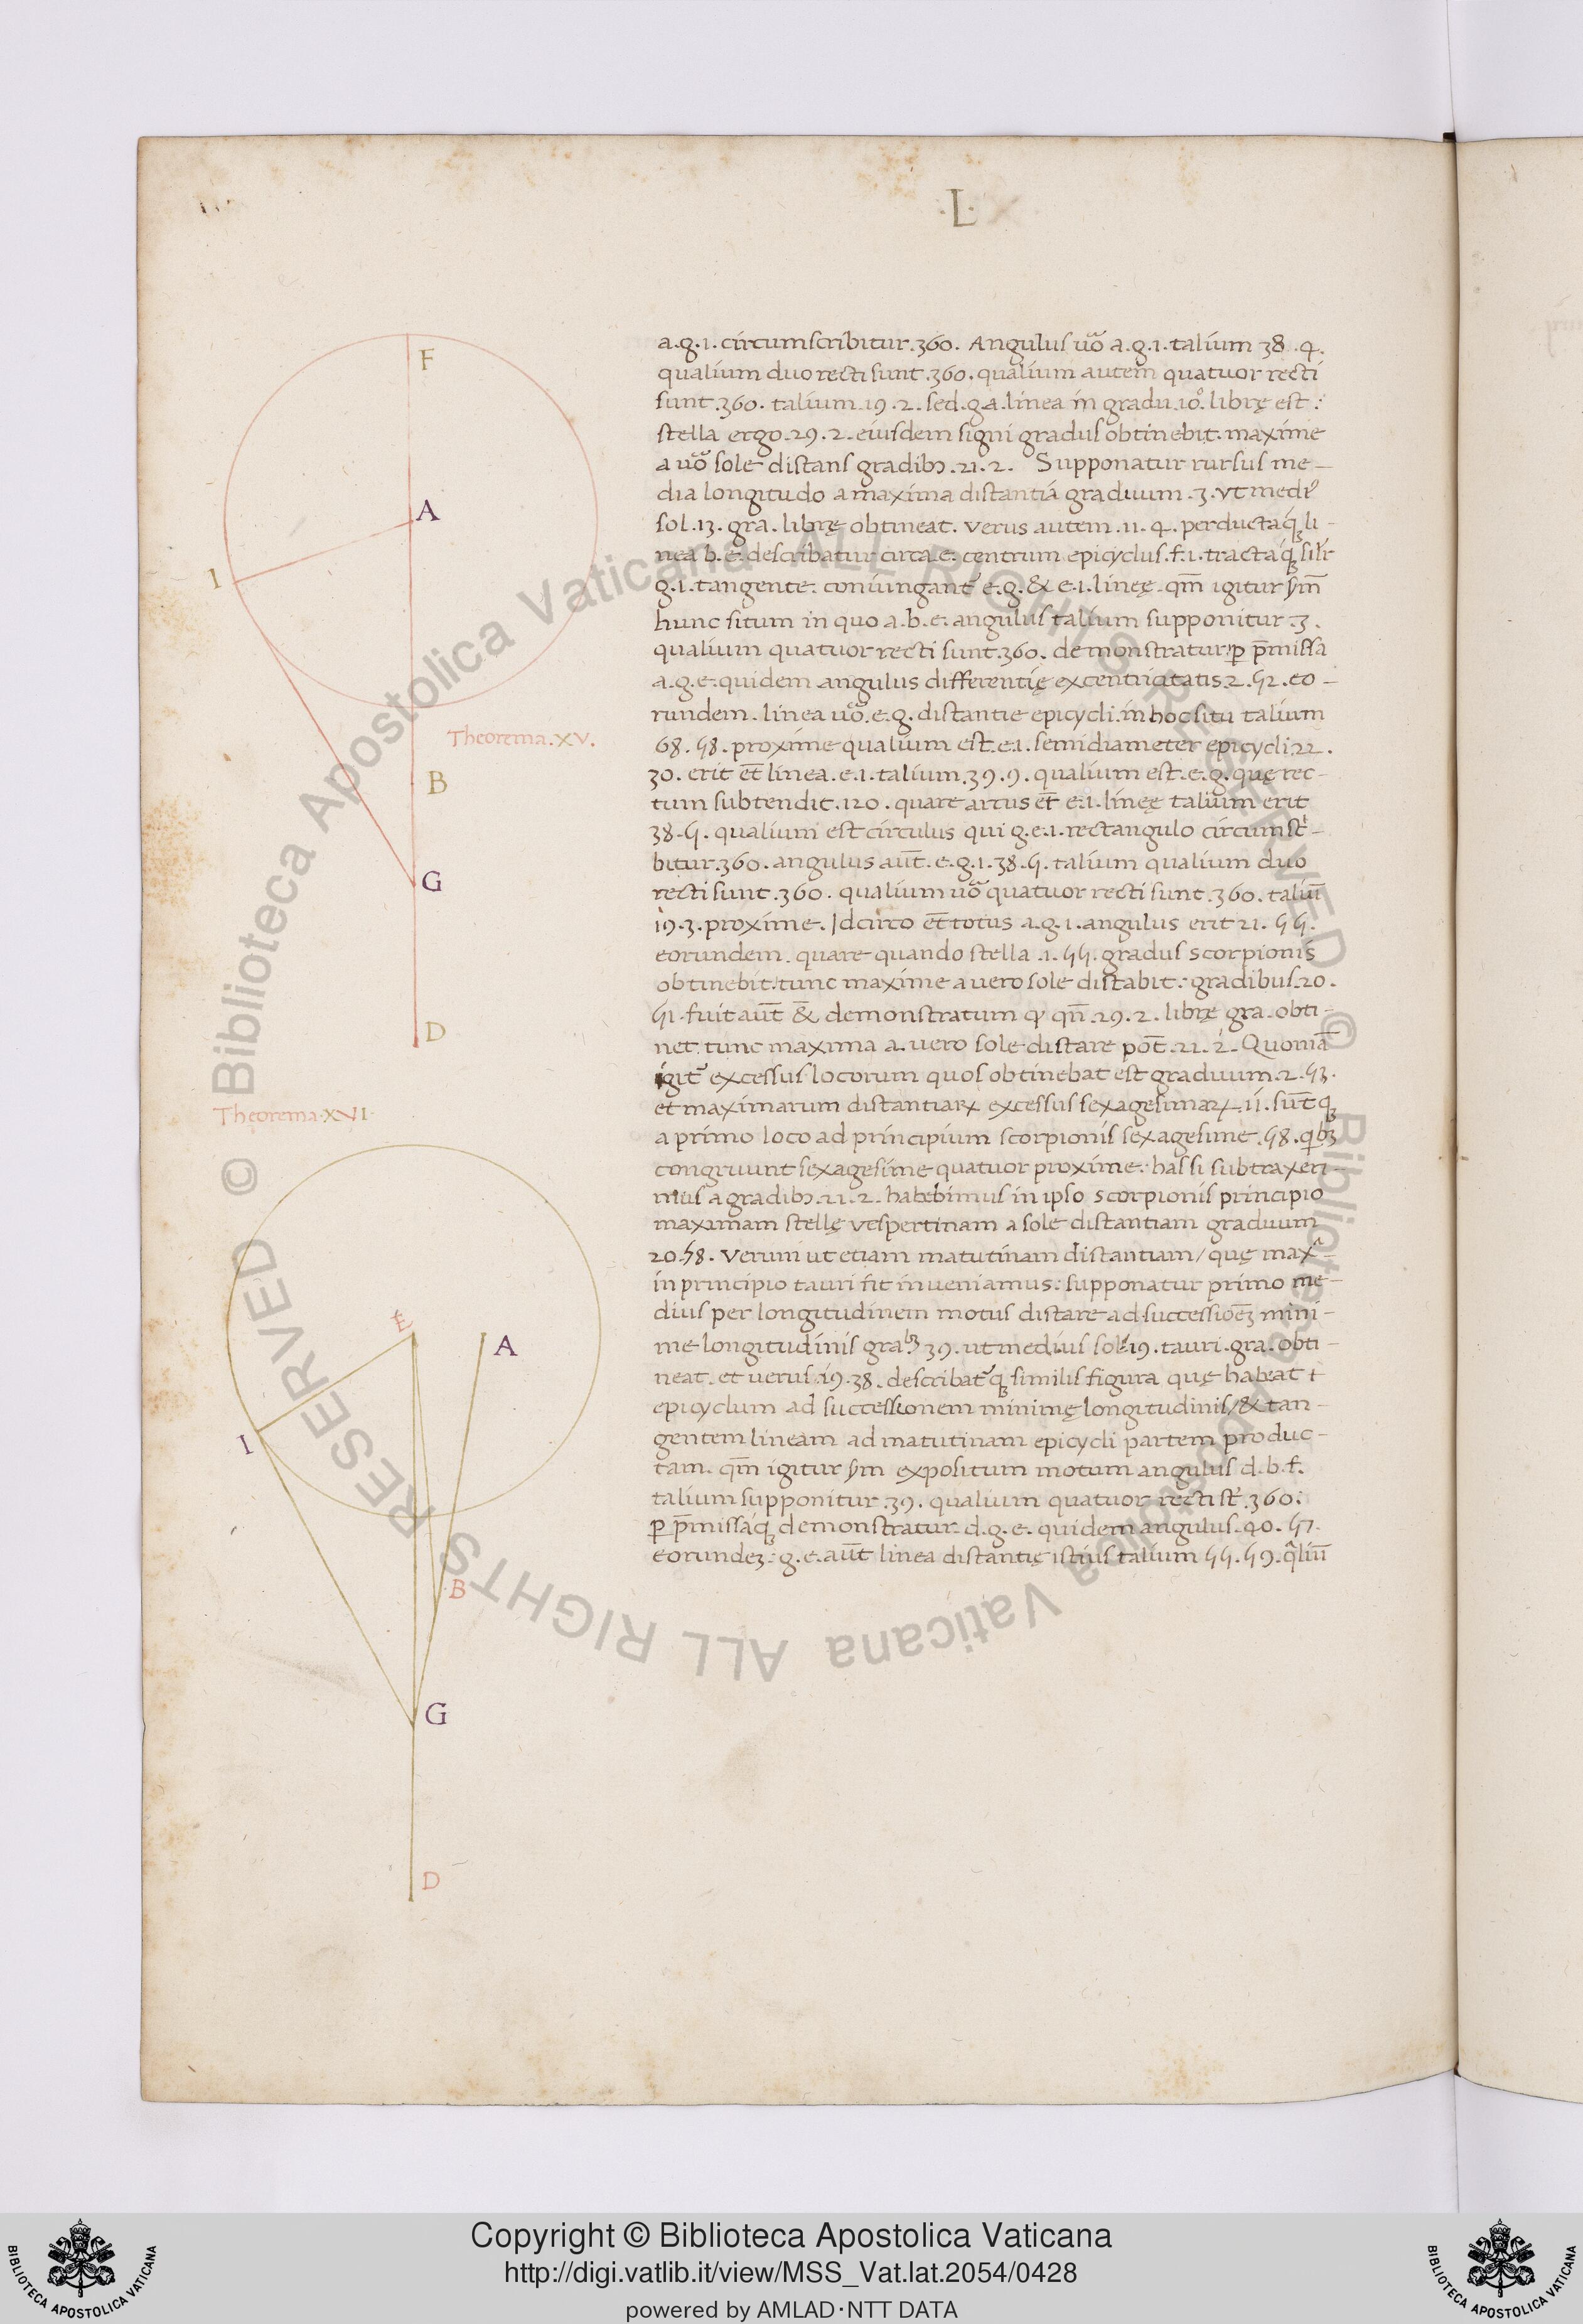 ·L·
a.g.ı. circumscribitur.360. Angulus uo᷃ a.g.ı. talium 38.4.
qualium duo recti sunt.360. qualium autem quatuor recti
sunt.360. talium.19.2. sed.g.a.linea in gradu.10.° librę est:
stella ergo.29.2. eiusdem signi gradus obtinebit. maxime
a uo᷃ sole distans gradibꝰ.21.2. Supponatur rursus me-
dia longitudo a maxima distantia graduum.3. ut mediꝰ
sol.13. gra. librę obtineat. verus autem.11.4. perductaq́ꝫ li-
nea b.e. describatur circa.e. centrum epicyclus.f.ı. tractaq́ꝫ sil̃r
g.ı. tangente. coniungant᷑ e.g. & e.ı. lineę. qm̃ igitur ẜm̃
hunc situm in quo a.b.e. angulus talium supponitur.3.
qualium quatuor recti sunt.360. demonstratur ꝑ p̃missa
a.g.e. quidem angulus differentię excentricitatis.2.52. eo-
rundem. linea uo᷃.e.g. distantie epicycli in hoc situ talium
68.58. proxime qualium est.e.ı. semidiameter epicycli.22.
30. erit et̃ linea.e.ı. talium.39.9. qualium est.e.g. quę rec-
tum subtendit.120. quare arcus et̃ e.ı. lineę talium erit
38.5. qualium est circulus qui g.e.ı. rectangulo circumscͥ-
bitur.360. angulus aut̃.e.g.ı.38.5. talium qualium duo
recti sunt.360. qualium uo᷃ quatuor recti sunt.360. taliũ
19.3. proxime. Idcirco et̃ totus a.g.ı. angulus erit 21.55.
eorundem. quare quando stella.1.55. gradus scorpionis
obtinebit: tunc maxime a vero sole distabit: gradibus.20.
51. fuit aut̃ &̃ demonstratum ꝙ qñ.29.2. librę gra. obti-
net: tunc maxima a.vero sole distare pot̃.21.2. Quoniã
igit᷑ excessus locorum quos obtinebat est graduum.2.53.
et maximarum distantiaꝝ excessus sexagesimaꝝ.11. sũtqꝫ
a primo loco ad principium scorpionis sexagesime.58. qͥbꝫ
congruunt sexagesime quatuor proxime: has si subtraxeri-
mus a gradibꝰ.21.2. habebimus in ipso scorpionis principio
maximam stellę vespertinam a sole distantiam graduum
20.58. Verum ut etiam matutinam distantiam/ quę maxᵃ
in principio tauri fit inveniamus: supponatur primo me-
dius per longitudinem motus distare ad successiõeꝫ mini-
me longitudinis gra.bꝫ 39. ut medius sol 19. tauri. gra. obti-
neat. et verus.19.38. describat᷑qꝫ similis figura quę habeat t
epicyclum ad successionem minimę longitudinis/ & tan-
gentem lineam ad matutinam epicycli partem produc-
tam. qm̃ igitur ẜm expositum motum angulus d.b.f.
talium supponitur.39. qualium quatuor recti st̃.360:
ꝑ p̃missaq́ꝫ demonstratur. d.g.e. quidem angulus.40.57.
eorundeꝫ: g.e. aut̃ linea distantię istius talium 55.59. q̃liũ
F
A
I
Theorema.XV.
B
G
D
Theorema.XVI.
E
A
I
B
G
D
Copyright © Biblioteca Apostolica Vaticana
http://digi.vatlib.it/view/MSS_Vat.lat.2054/0428
powered by AMLAD·NTT DATA
BIBLIOTECA APOSTOLICA VATICANA
BIBLIOTECA APOSTOLICA VATICANA
© Biblioteca Apostolica Vaticana ALL RIGHTS RESERVED
© Biblioteca Apostolica Vaticana ALL RIGHTS RESERVED